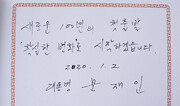 새로운 100년의 첫 출발
확실한 변화로 시작하겠습니다
2020. 1. 2
대통령 문재인